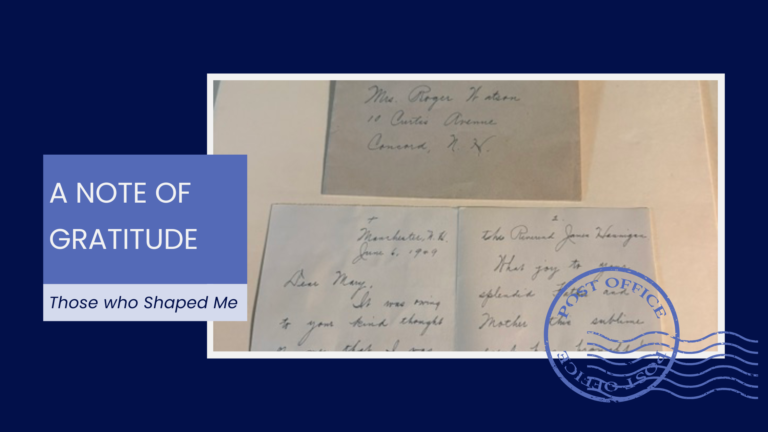 A NOTE OF
GRATITUDE
Those who Shaped Me
Mrs. Roger Watson
10 Curtis Avenue
Concord, N. H.
Manchester, N. H.
June 6, 1909
Dear Mary,
It was owing
to your kind thought
that I was
2.
the Reverend James
What joy to your
splendid Father and
Mother this sublime
POST OFFICE
POST OFFICE